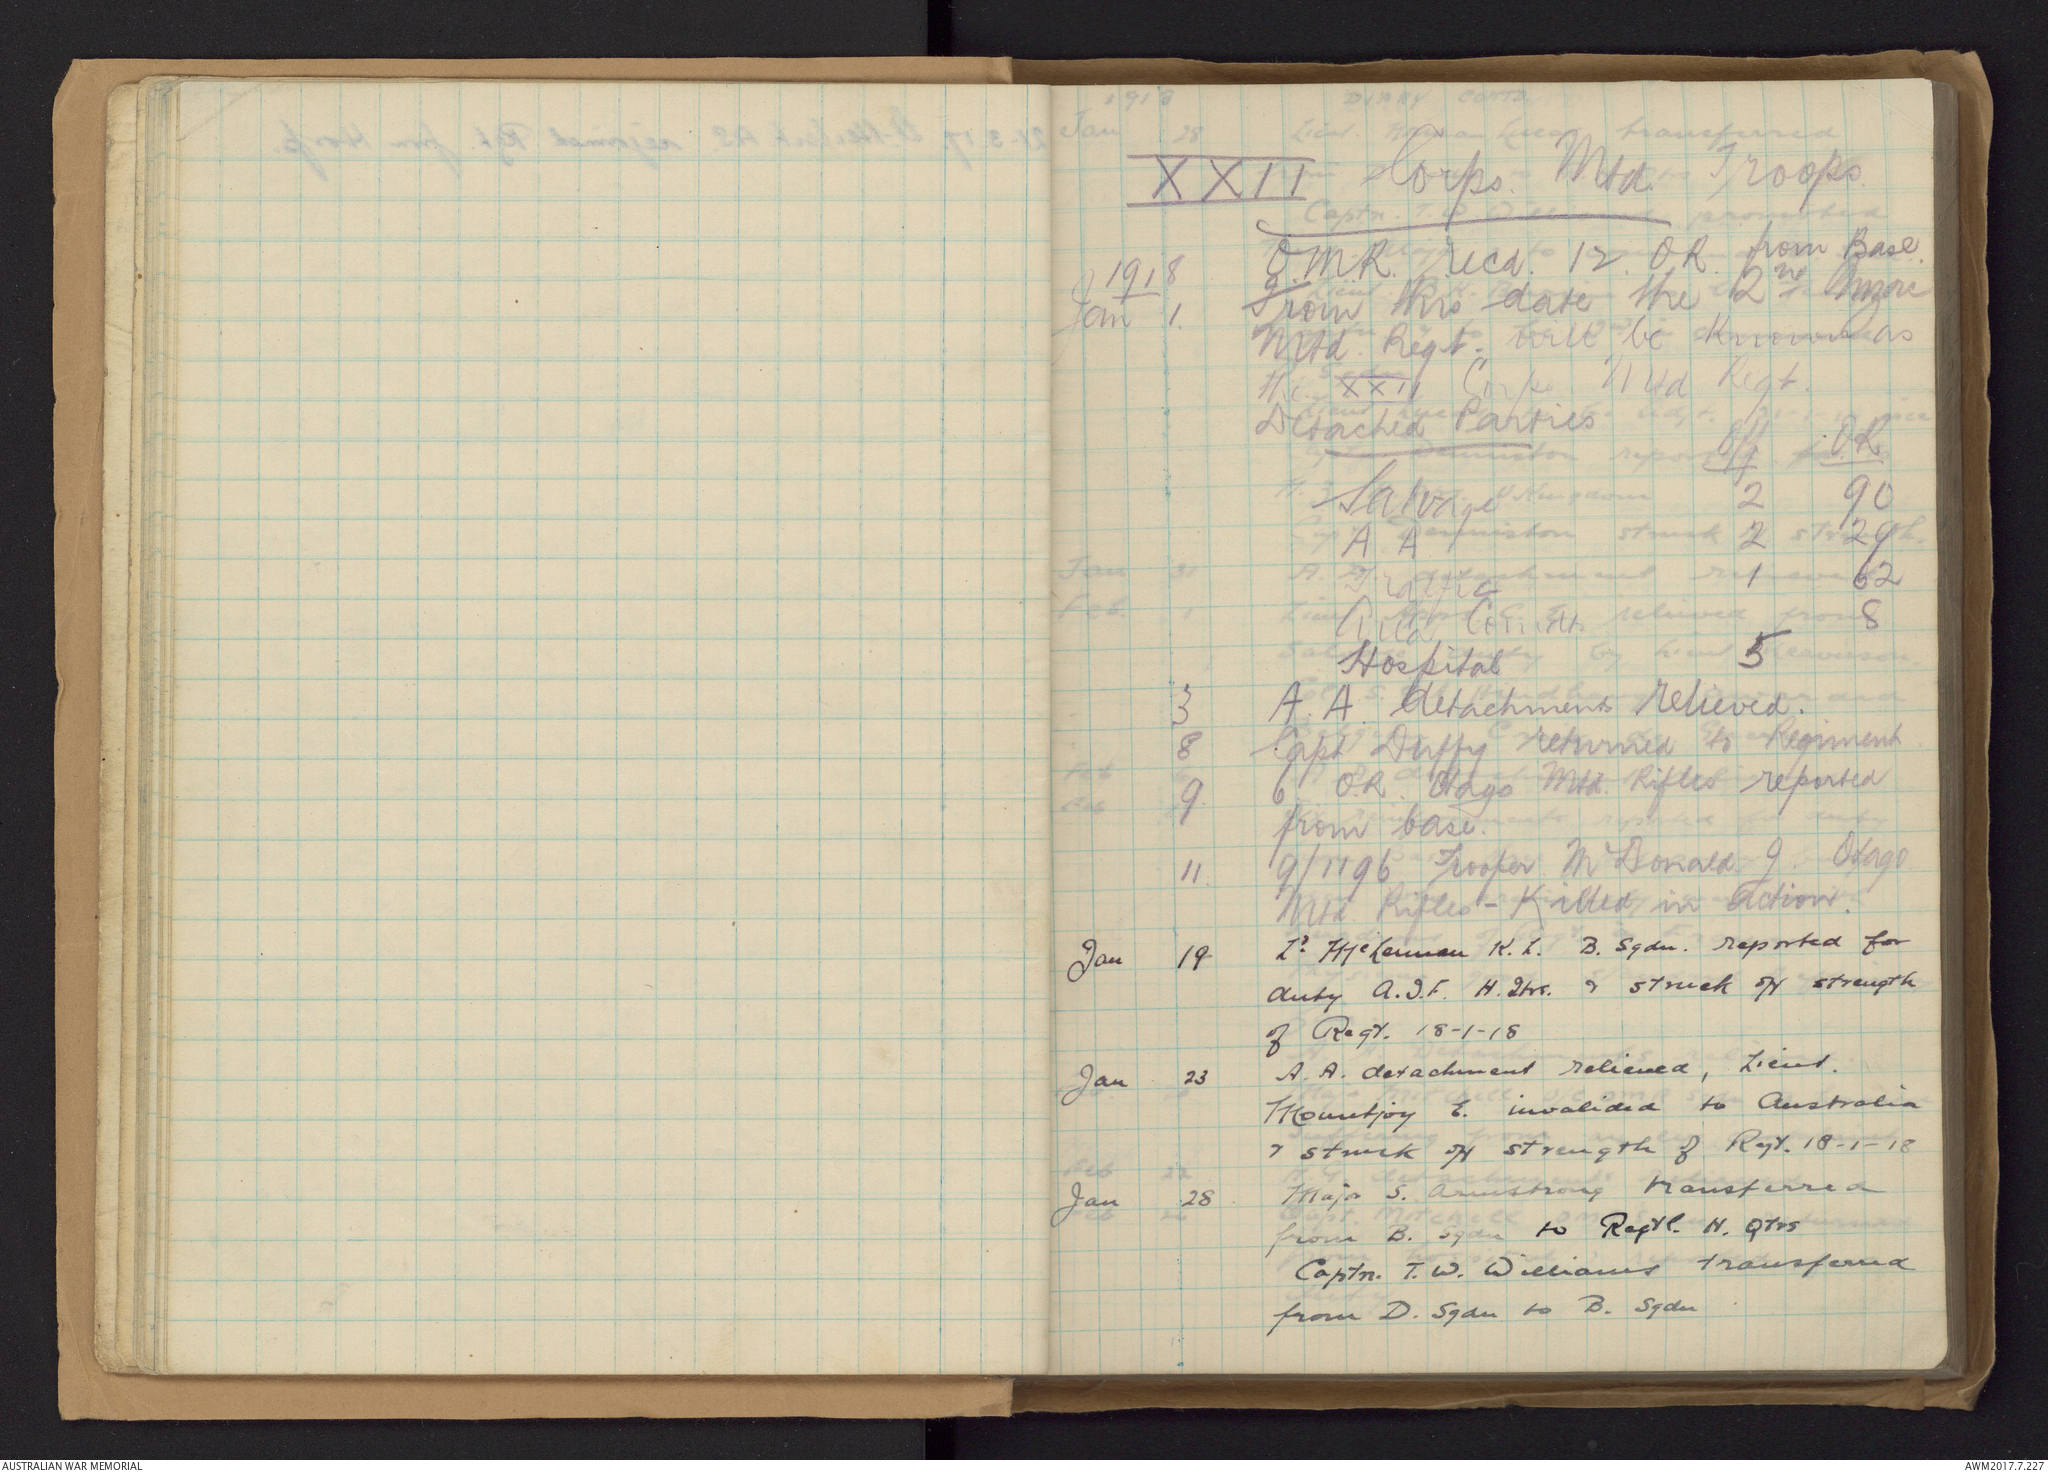 XXII Corps. Mtd. Troops
O.M.R. recd. 12 O.R. from Base.
1918
Jan 1. From this date the 2nd Anzac
Mtd. Regt. will be known as
the XXII Corps Mtd Regt.
Detached Parties
Off O.R.
Salvage 2 90
A A 2 29
Traffic 1 62
8
Hospital 5
3 A. A. detachments relieved.
8 Capt Duffy returned to Regiment
9 6 O.R. Otago Mtd. Rifles reported
from base.
11. 9/1196 Trooper McDonald J. Otago
Mtd. Rifles - Killed in action.
Jan 19 Lt K. L. B. Sqdn. reported for
duty A.I.F. H. Qtrs. & struck off strength
of Regt. 18-1-18
Jan 23 A. A. detachment relieved, Lieut.
Mountjoy E. invalided to Australia
& struck off strength of Regt. 18-1-18
Jan 28 Major S. Armstrong transferred
from B. Sqdn to Regtl. H. Qtrs
Captn. T. W. Williams transferred
from D. Sqdn to B. Sqdn
AUSTRALIAN WAR MEMORIAL
AWM2017.7.227